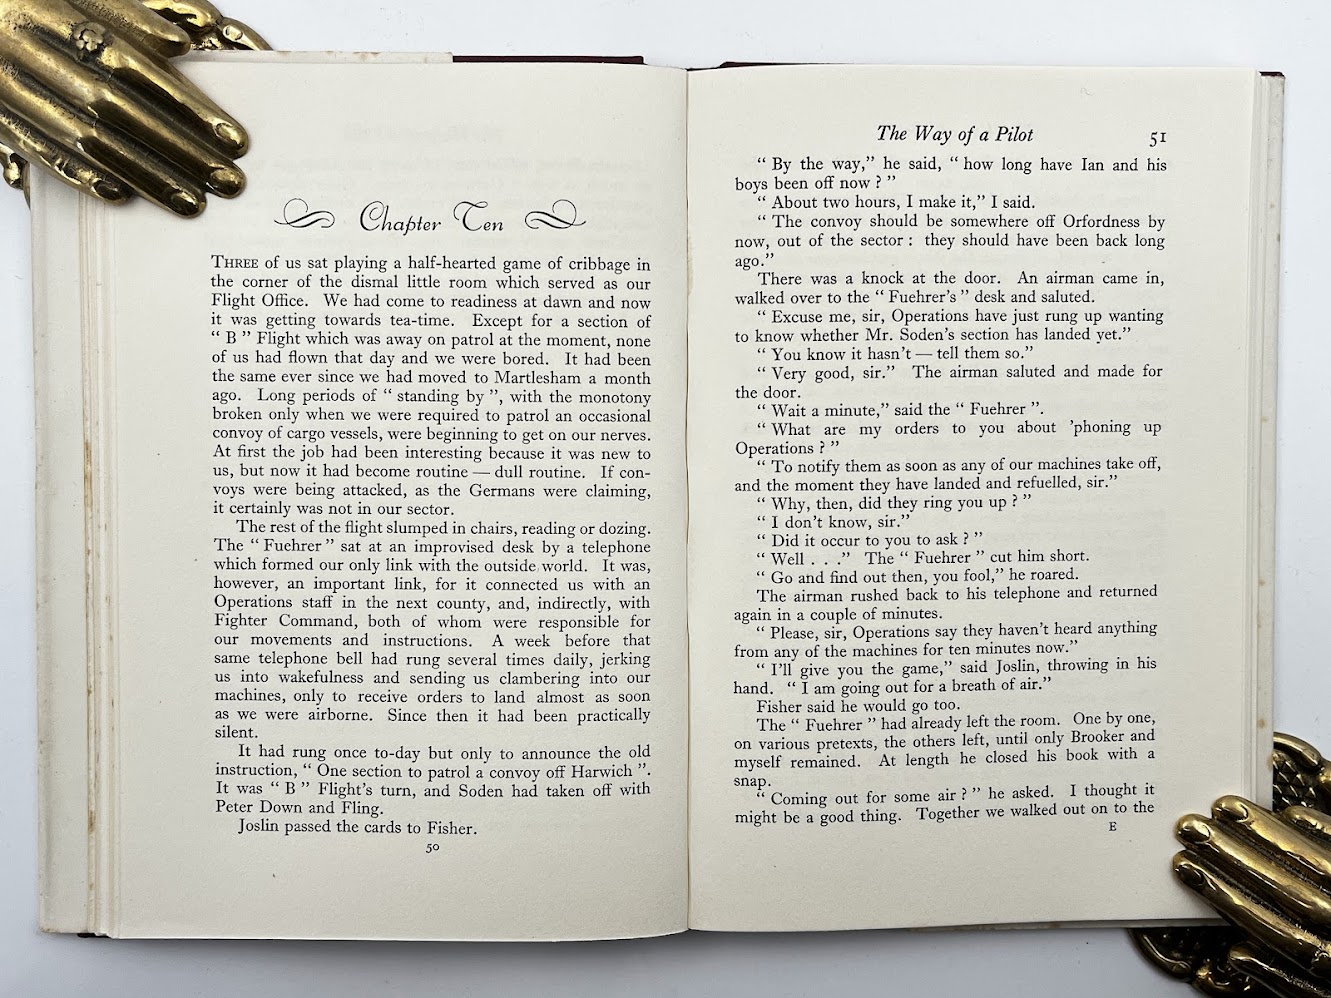 Chapter Ten
THREE of us sat playing a half-hearted game of cribbage in
the corner of the dismal little room which served as our
Flight Office. We had come to readiness at dawn and now
it was getting towards tea-time. Except for a section of
“ B ” Flight which was away on patrol at the moment, none
of us had flown that day and we were bored. It had been
the same ever since we had moved to Martlesham a month
ago. Long periods of “ standing by ”, with the monotony
broken only when we were required to patrol an occasional
convoy of cargo vessels, were beginning to get on our nerves.
At first the job had been interesting because it was new to
us, but now it had become routine — dull routine. If con-
voys were being attacked, as the Germans were claiming,
it certainly was not in our sector.
The rest of the flight slumped in chairs, reading or dozing.
The “ Fuehrer ” sat at an improvised desk by a telephone
which formed our only link with the outside world. It was,
however, an important link, for it connected us with an
Operations staff in the next county, and, indirectly, with
Fighter Command, both of whom were responsible for
our movements and instructions. A week before that
same telephone bell had rung several times daily, jerking
us into wakefulness and sending us clambering into our
machines, only to receive orders to land almost as soon
as we were airborne. Since then it had been practically
silent.
It had rung once to-day but only to announce the old
instruction, “ One section to patrol a convoy off Harwich ”.
It was “ B ” Flight's turn, and Soden had taken off with
Peter Down and Fling.
Joslin passed the cards to Fisher.
50
The Way of a Pilot 51
“ By the way,” he said, “ how long have Ian and his
boys been off now ? ”
“ About two hours, I make it,” I said.
“ The convoy should be somewhere off Orfordness by
now, out of the sector : they should have been back long
ago.”
There was a knock at the door. An airman came in,
walked over to the “ Fuehrer's ” desk and saluted.
“ Excuse me, sir, Operations have just rung up wanting
to know whether Mr. Soden's section has landed yet.”
“ You know it hasn't — tell them so.”
“ Very good, sir.” The airman saluted and made for
the door.
“ Wait a minute,” said the “ Fuehrer ”.
“ What are my orders to you about 'phoning up
Operations ? ”
“ To notify them as soon as any of our machines take off,
and the moment they have landed and refuelled, sir.”
“ Why, then, did they ring you up ? ”
“ I don't know, sir.”
“ Did it occur to you to ask ? ”
“ Well . . .” The “ Fuehrer ” cut him short.
“ Go and find out then, you fool,” he roared.
The airman rushed back to his telephone and returned
again in a couple of minutes.
“ Please, sir, Operations say they haven't heard anything
from any of the machines for ten minutes now.”
“ I'll give you the game,” said Joslin, throwing in his
hand. “ I am going out for a breath of air.”
Fisher said he would go too.
The “ Fuehrer ” had already left the room. One by one,
on various pretexts, the others left, until only Brooker and
myself remained. At length he closed his book with a
snap.
“ Coming out for some air ? ” he asked. I thought it
might be a good thing. Together we walked out on to the
E